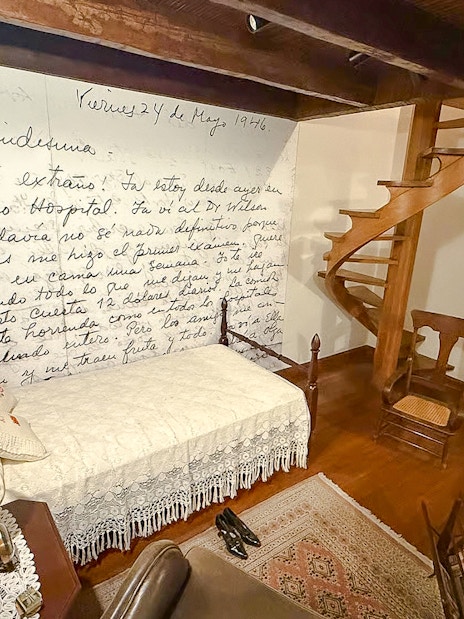 Viernes 24 de Mayo 1946.
indísima.
extraño! Ya estoy desde ayer en
o Hospital. Ya vi al Dr Wilson
davía no se nada definitivo porque
s me hizo el primer examen. Quiere
en cama una semana. Yo te
ndo todo lo que me digan y me hagan
sto cuesta 12 dolares diarios, la comida
ta horrenda como en todos los hospitales
luado entero. Pero los
y me traen fruta y todo